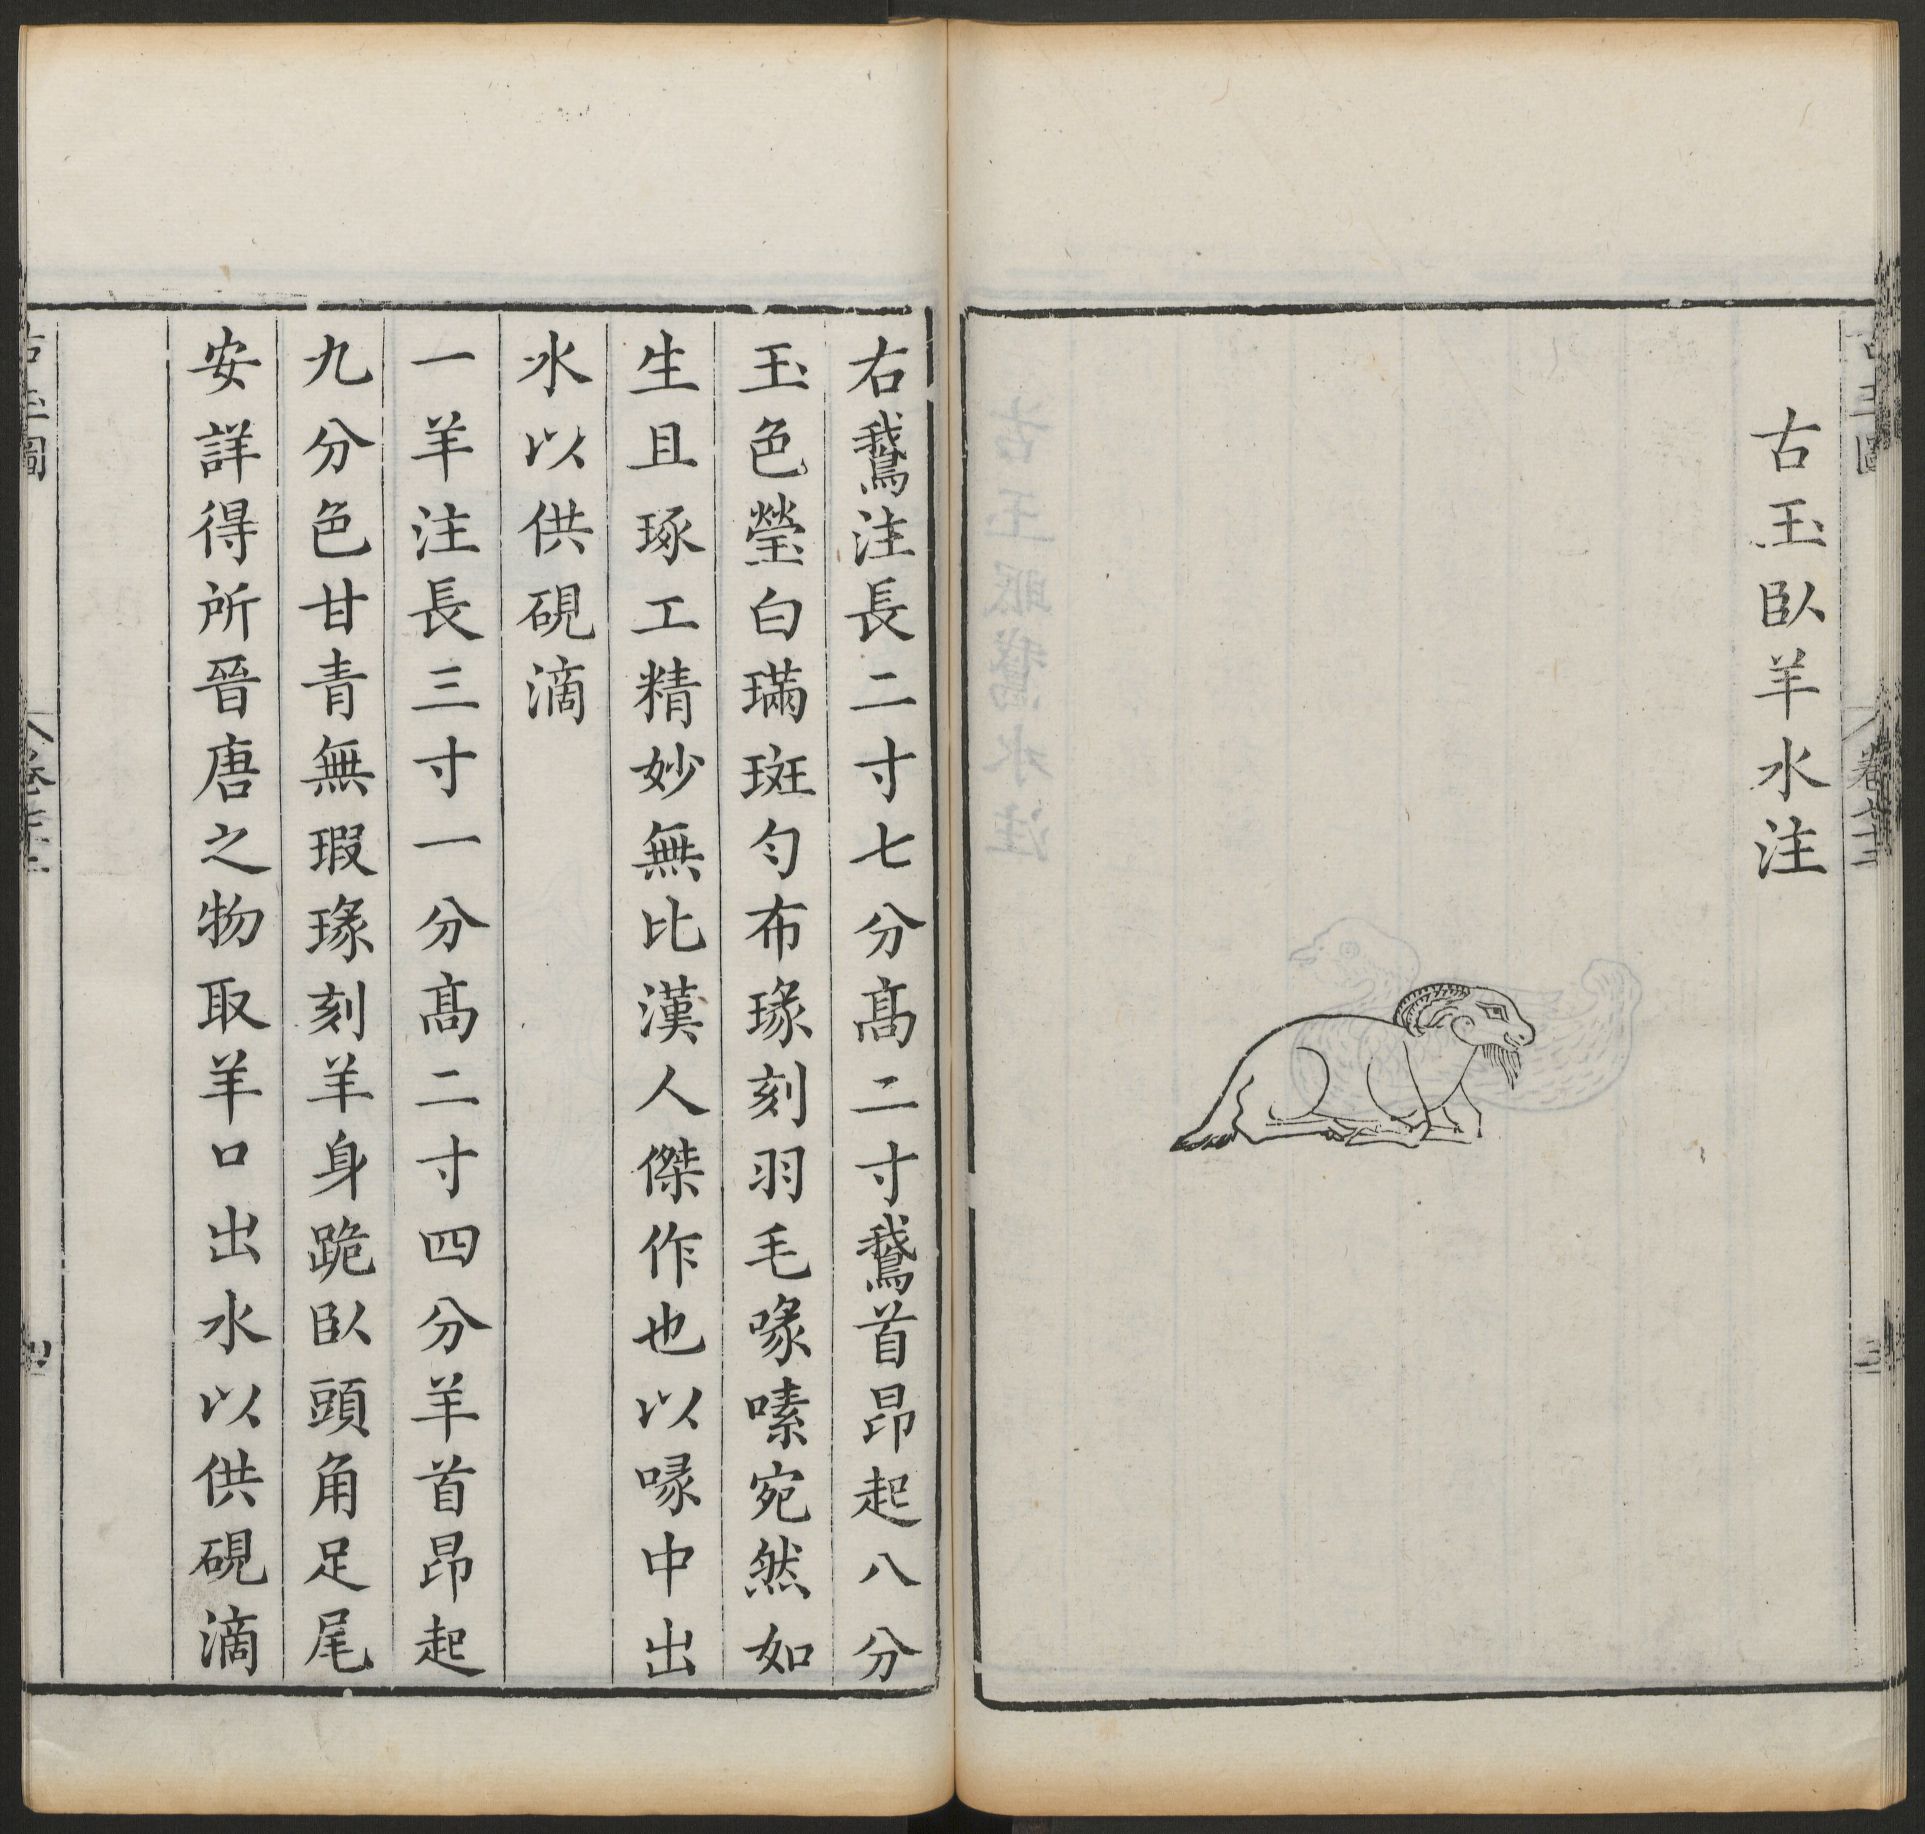 古玉臥羊水注
右鵞注長二寸七分髙二寸鵞首昂起八分
玉色瑩白璊斑勻布瑑刻羽毛喙嗉宛然如
生且琢工精妙無比漢人傑作也以喙中出
水以供硯滴
一羊注長三寸一分髙二寸四分羊首昂起
九分色甘青無瑕瑑刻羊身跪臥頭角足尾
安詳得所晉唐之物取羊口出水以供硯滴